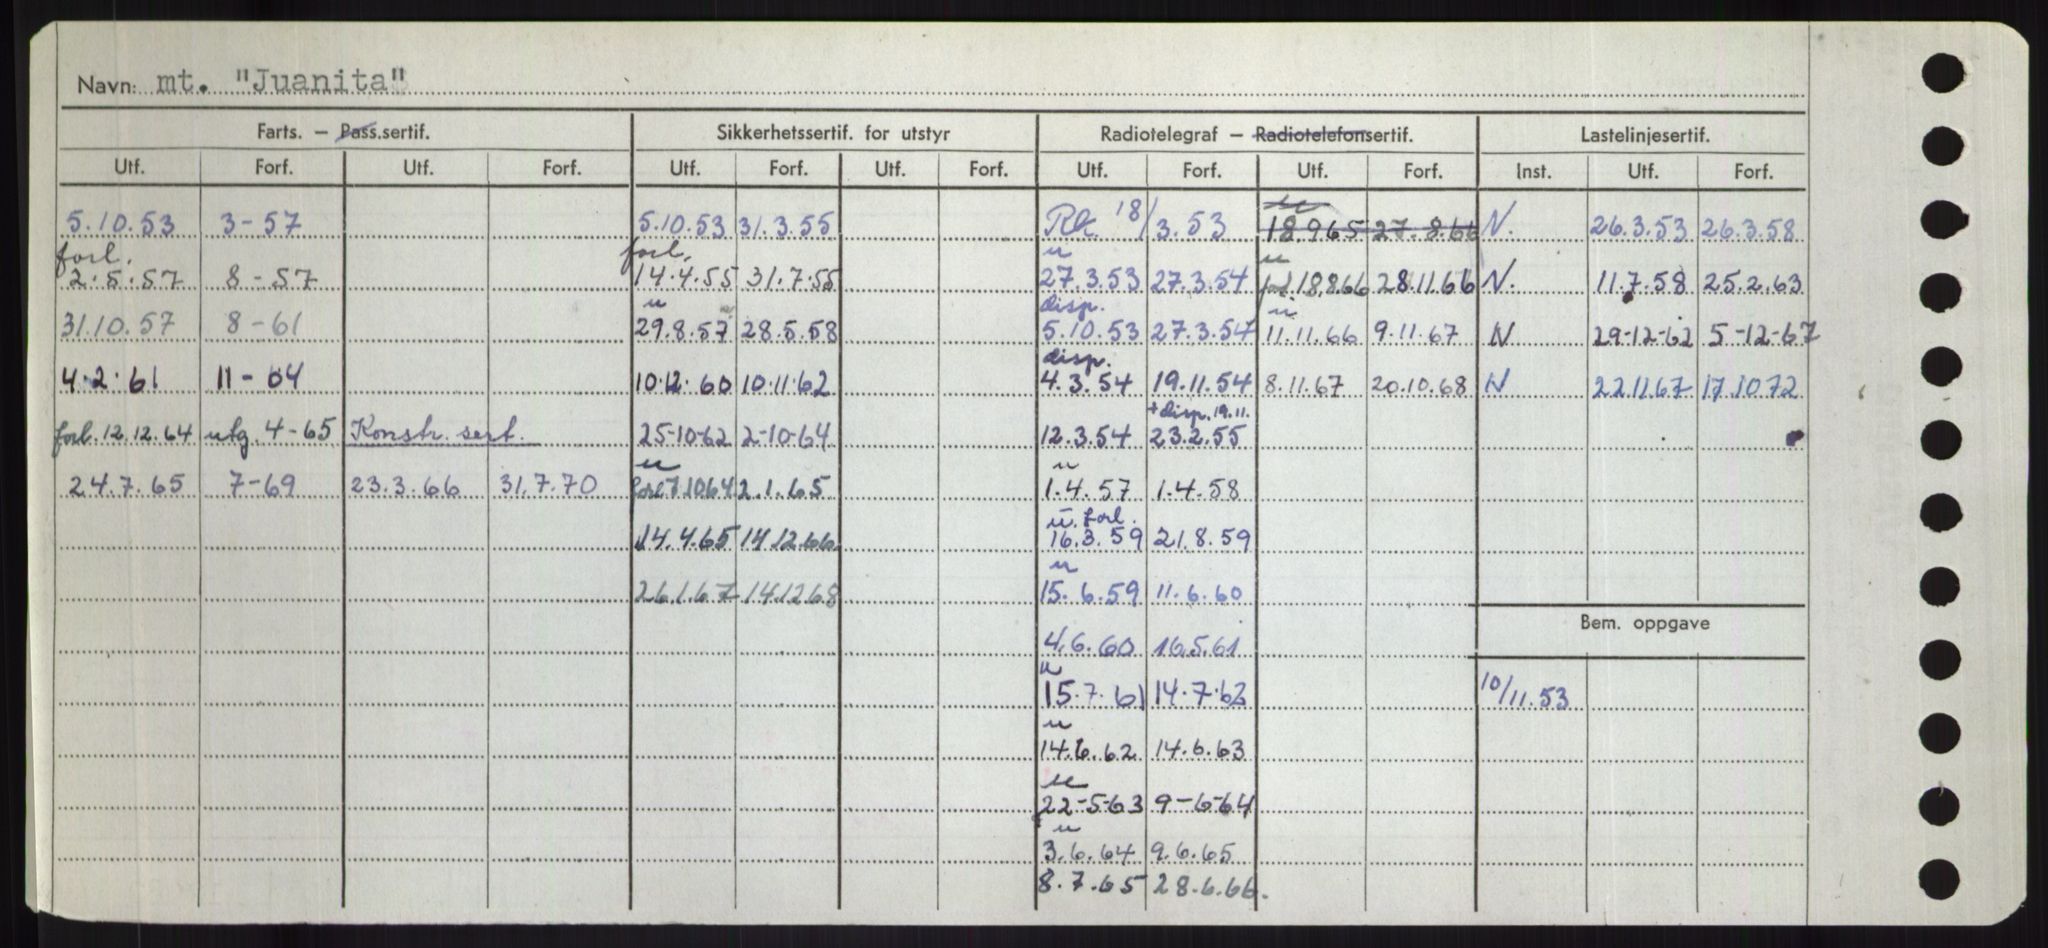 Navn: mt. "Juanita"
Farts. – Pass.sertif. Sikkerhetssertif. for utstyr Radiotelegraf – Radiotelefonsertif. Lastelinjesertif.
Utf. Forf. Utf. Forf. Utf. Forf. Utf. Forf. Utf. Forf. Utf. Forf. Inst. Utf. Forf.
5.10.53 3-57 5.10.53 31.3.55 Rk. 18/3.53 18.9.65 27.8.66 N. 26.3.53 26.3.58
forl. forl. u u
2.5.57 8-57 14.4.55 31.7.55 27.3.53 27.3.54 forl. 18.8.66 28.11.66 N. 11.7.58 25.2.63
u disp. u
31.10.57 8-61 29.8.57 28.5.58 5.10.53 27.3.54 11.11.66 9.11.67 N 29-12-62 5-12-67
disp.
4.2.61 11-64 10.12.60 10.11.62 4.3.54 19.11.54 8.11.67 20.10.68 N 22.11.67 17.10.72
+ disp. 19.11.
forl. 12.12.64 utg. 4-65 Konstr. sert. 25-10-62 2-10-64 12.3.54 23.2.55
u u
24.7.65 7-69 23.3.66 31.7.70 forl 7.10.64 2.1.65 1.4.57 1.4.58
u. forl.
14.4.65 14.12.66. 16.3.59 21.8.59
u
26.1.67 14.12.68 15.6.59 11.6.60
Bem. oppgave
4.6.60 16.5.61
u
15.7.61 14.7.62 10/11.53
u
14.6.62 14.6.63
u
22-5-63 9-6-64
u
3.6.64 9.6.65
8.7.65 28.6.66.